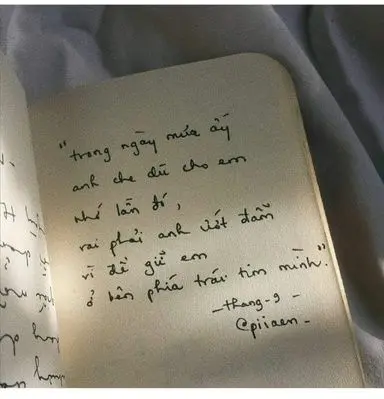 "trong ngày mưa ấy
anh che dù cho em
nhớ lần đó,
vai phải anh ướt đẫm
vì để giữ em
ở bên phía trái tim mình."
-thang-9-
@piiaen-